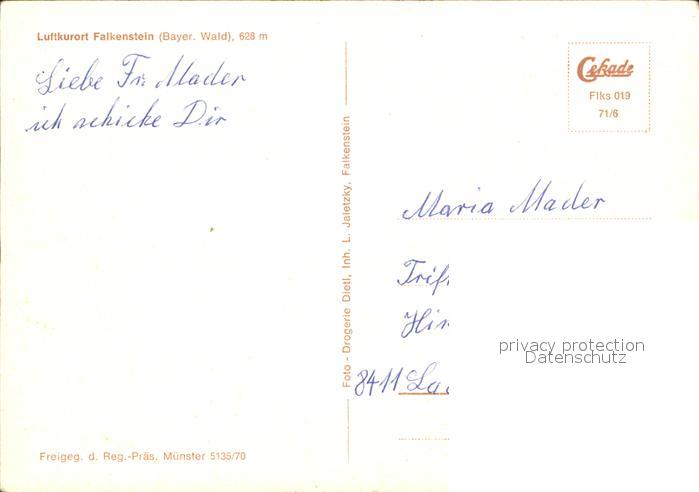 Luftkurort Falkenstein (Bayer. Wald), 628 m
Liebe Fr. Mader
ich schicke Dir
Freigeg. d. Reg.-Präs. Münster 5135/70
Foto - Drogerie Dietl, Inh. L. Jaletzky, Falkenstein
Cekade
Flks 019
71/6
Maria Mader
8411
privacy protection
Datenschutz